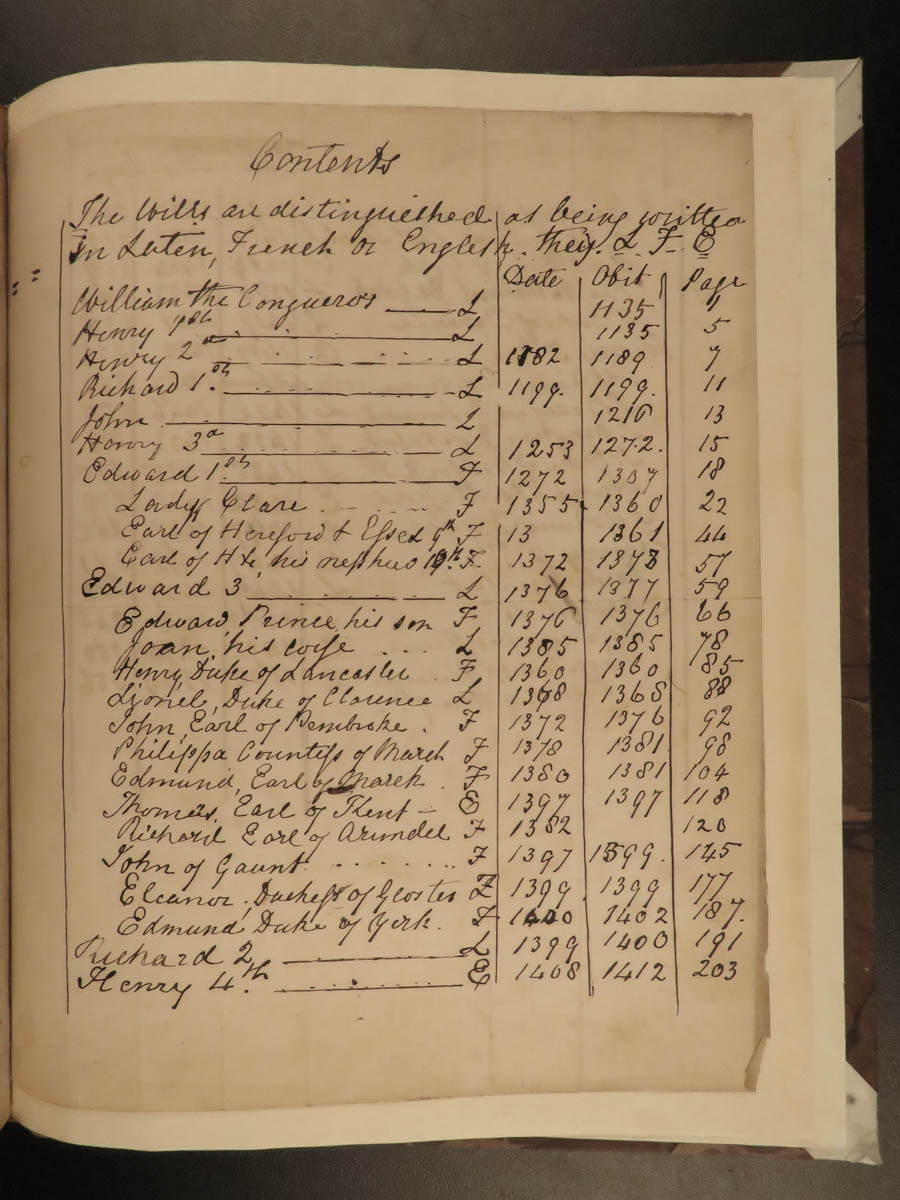 Contents
The Wills are distinguished as being written
In Laten, French or English they. L. F. E
Date Obit Page
William the Conqueror L 1135 1
Henry 1st L 1135 5
Henry 2d L 1182 1189 7
Richard 1st L 1199. 1199. 11
John L 1216 13
Henry 3d L 1253 1272. 15
Edward 1st F 1272 1307 18
Lady Clare F 1355 1360 22
Earl of Hereford & Essex 9th F 13 1361 44
Earl of H &c, his nephew 10th F 1372 1373 57
Edward 3 L 1376 1377 59
Edward Prince, his son F 1376 1376 66
Joan, his wife ... L 1385 1385 78
Henry Duke of Lancaster . F 1360 1360 85
Lionel, Duke of Clarence L 1368 1368 88
John, Earl of Pembroke . F 1372 1376 92
Philippa Countess of March F 1378 1381. 98
Edmund, Earl of March . F 1380 1381 104
Thomas, Earl of Kent – E 1397 1397 118
Richard Earl of Arundel F 1382 120
John of Gaunt F 1397 1399. 145
Eleanor, Duchess of Gloster F 1399 1399 177
Edmund Duke of York. F 1400 1402 187.
Richard 2 L 1399 1400 191
Henry 4th E 1408 1412 203